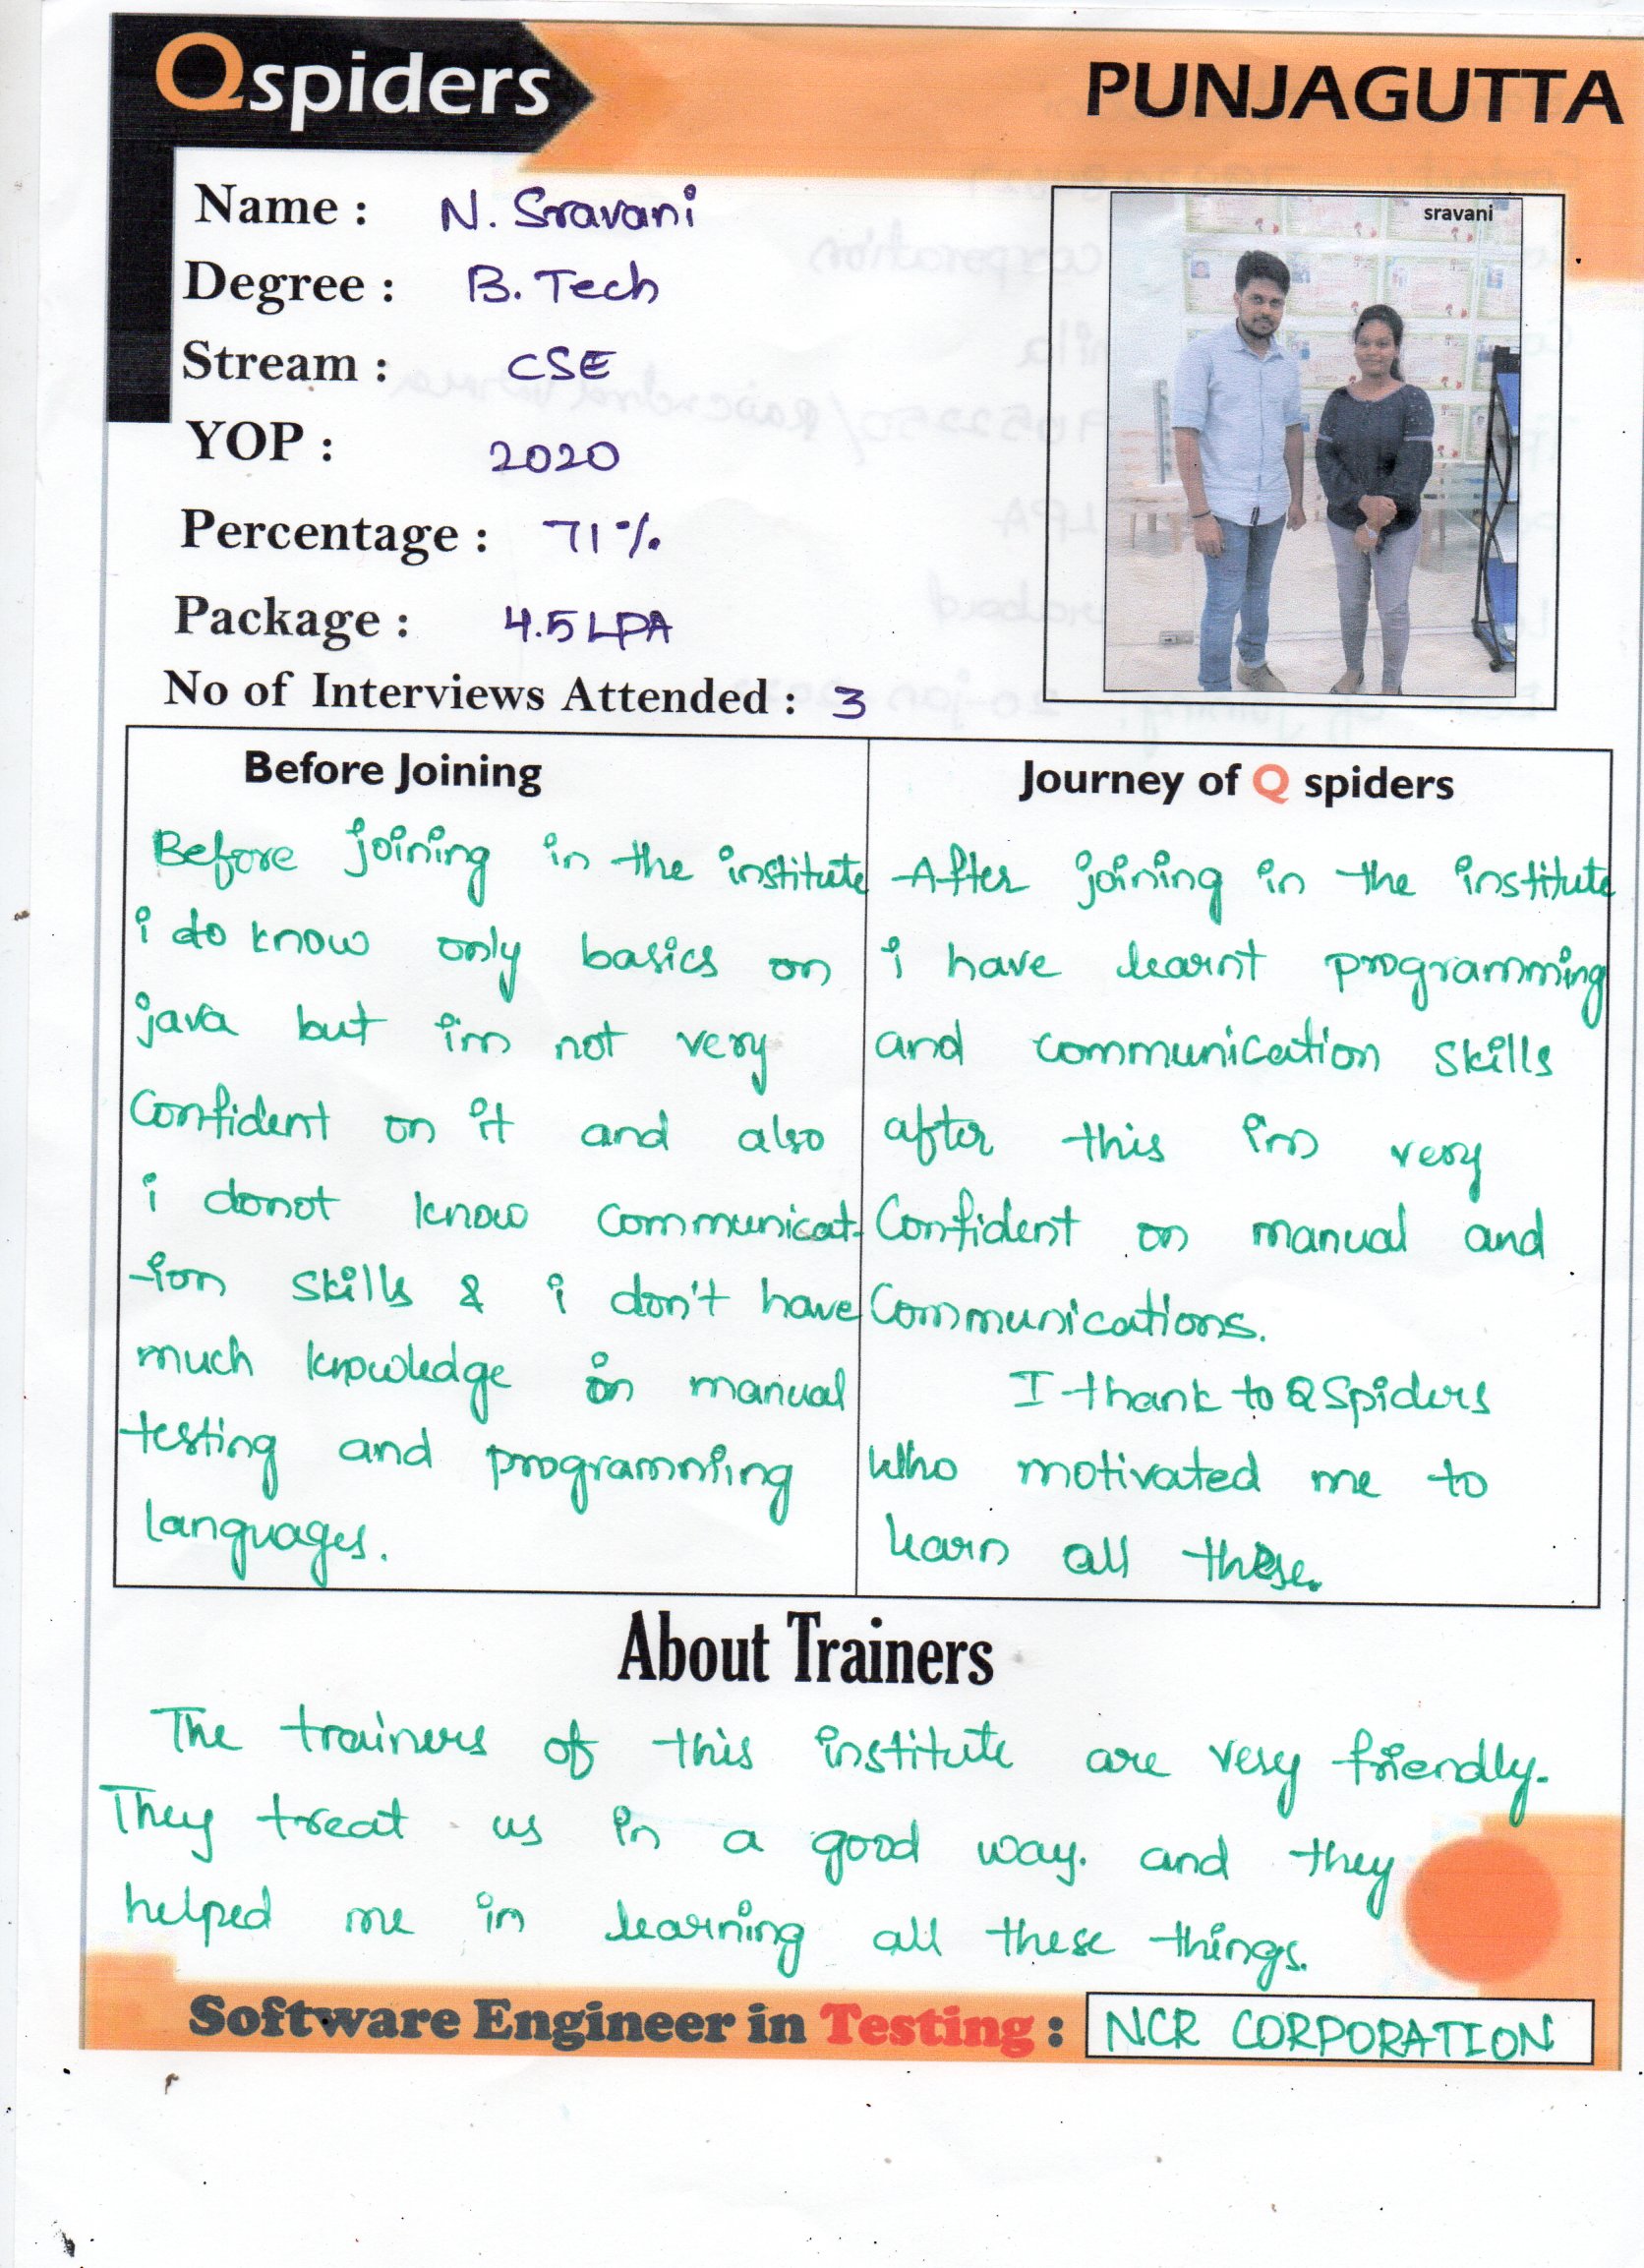 Qspiders
PUNJAGUTTA
Name : N. Sravani
Degree : B. Tech
Stream : CSE
YOP : 2020
Percentage : 71%
Package : 4.5 LPA
No of Interviews Attended : 3
sravani
Before Joining
Before joining in the institute
i do know only basics on
java but i'm not very
Confident on it and also
i donot know communicat-
-ion skills & i don't have
much knowledge on manual
testing and programming
languages.
Journey of Q spiders
After joining in the institute
i have learnt programming
and communication skills
after this i'm very
Confident on manual and
Communications.
I thank to QSpiders
who motivated me to
learn all these.
About Trainers
The trainers of this institute are very friendly.
They treat us in a good way. and they
helped me in learning all these things.
Software Engineer in Testing : NCR CORPORATION